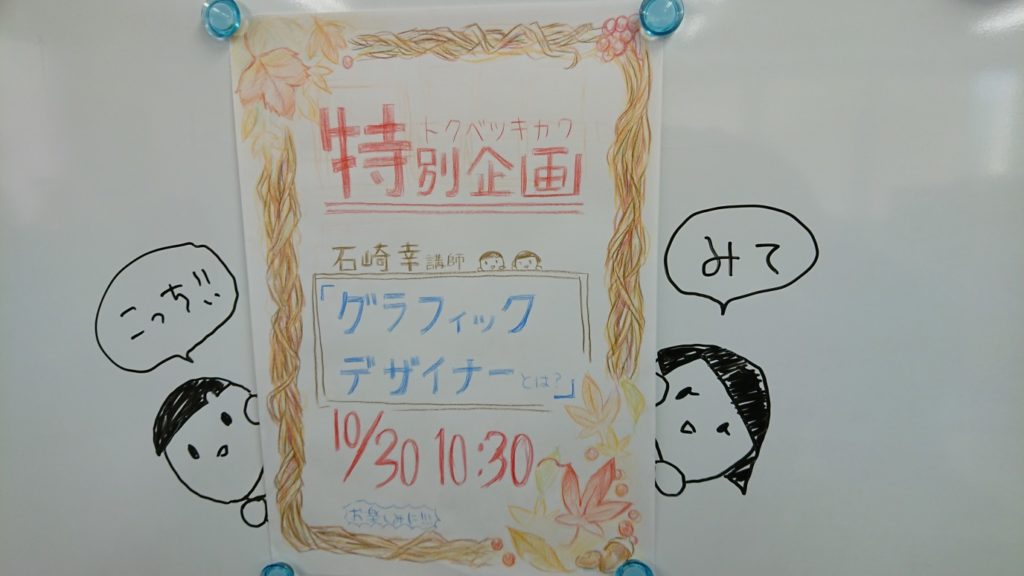 トクベツキカク
特別企画
石崎幸講師
「グラフィック
デザイナーとは?」
10/30 10:30
お楽しみに!!!
こっち!!
みて